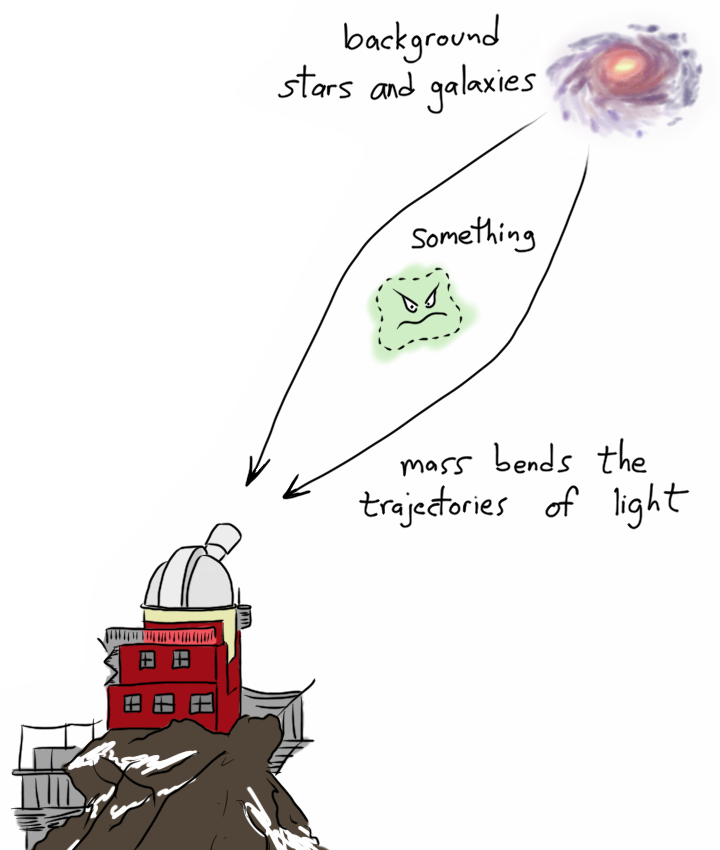 background
stars and galaxies
something
mass bends the
trajectories of light